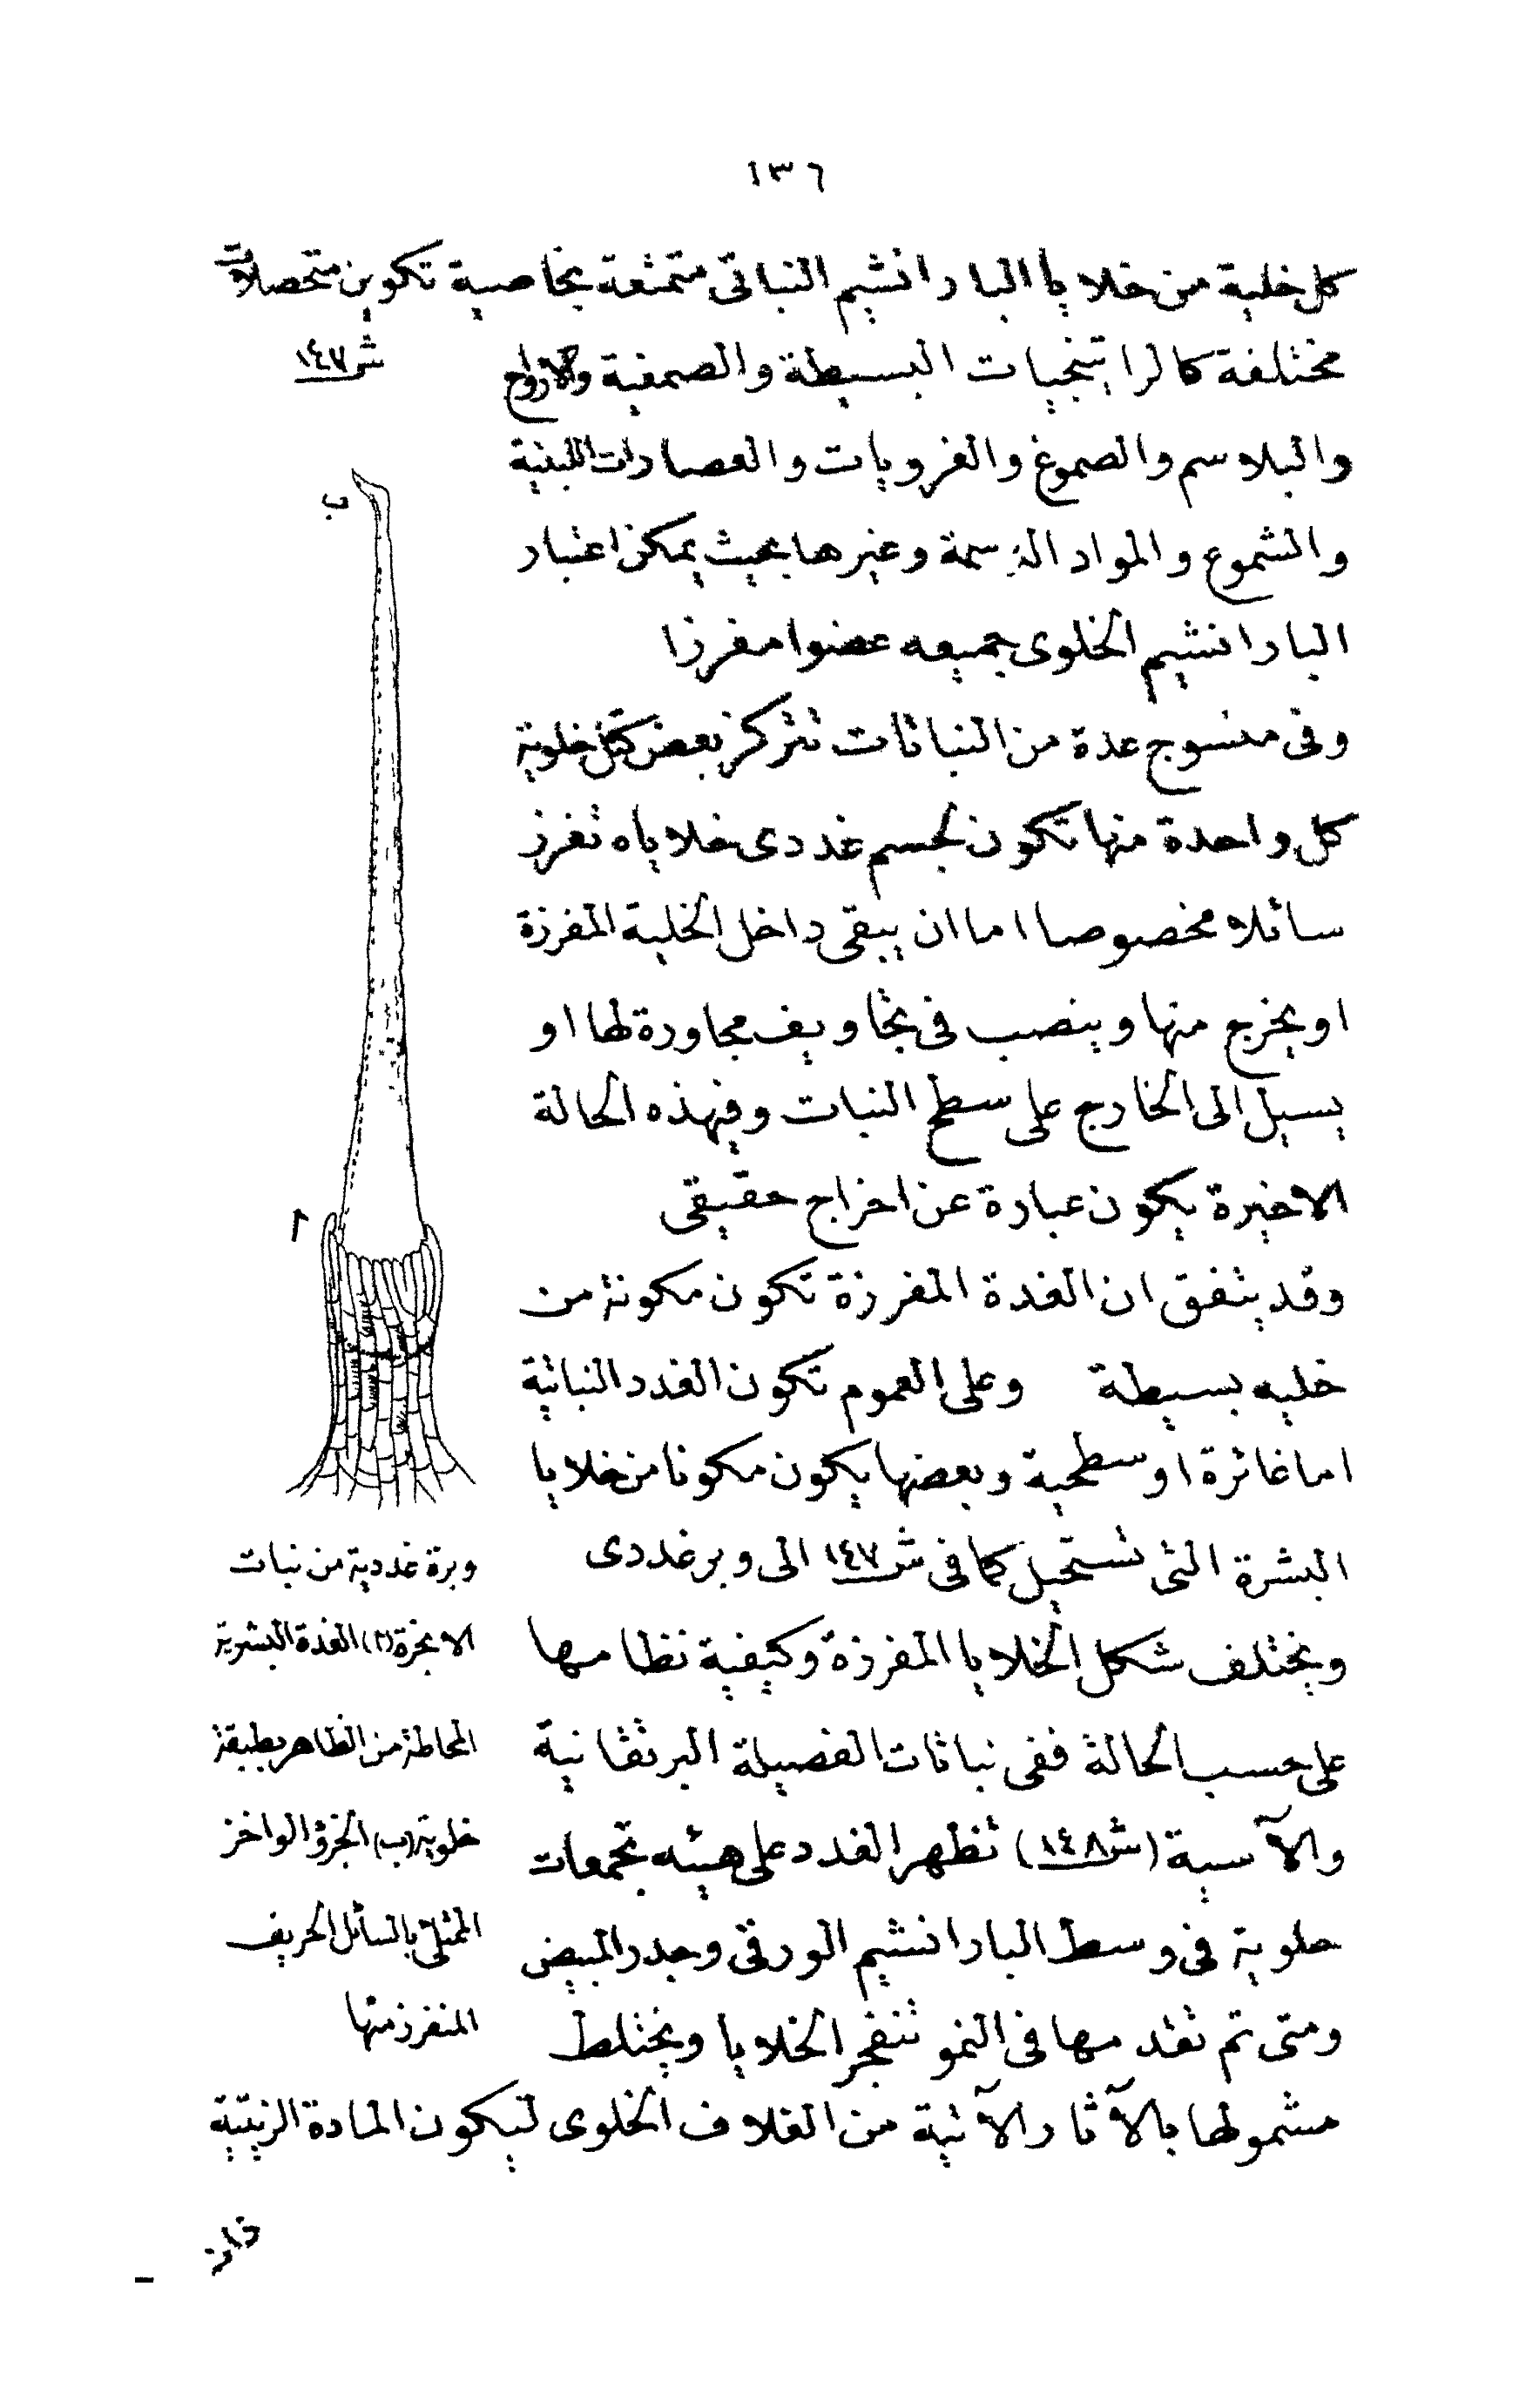 ١٣٦
كل خلية من خلايا البارانشيم النباتى متمتعة بخاصية تكوين متحصلات
مختلفة كالراتينجيات البسيطة والصمغية والارواح
والبلاسم والصموغ والغرويات والعصارات اللبنية
والشموع والمواد الدسمة وغيرها بحيث يمكن اعتبار
البارانشيم الخلوى جميعه عضوا مفرزا
وفى منسوج عدة من النباتات تتركز بعض كتل خلوية
كل واحدة منها تكون لجسم غددى خلاياه تفرز
سائلا مخصوصا اما ان يبقى داخل الخلية المفرزة
او يخرج منها وينصب فى تجاويف مجاورة لها او
يسيل الى الخارج على سطح النبات وفيهذه الحالة
الاخيرة يكون عبارة عن اخراج حقيقى
وقد يتفق ان الغدة المفرزة تكون مكونة من
خليه بسيطة وعلى العموم تكون الغدد النباتية
اما غائرة او سطحية وبعضها يكون مكونا من خلايا
البشرة التى تستحيل كما فى ش ١٤٧ الى وبر غددى
ويختلف شكل الخلايا المفرزة وكيفية نظامها
على حسب الحالة ففى نباتات الفصيلة البرتقانية
والآسية (ش ١٤٨) تظهر الغدد على هيئه تجمعات
خلوية فى وسط البارانشيم الورقى وجدر المبيض
ومتى تم تقدمها فى النمو تنفجر الخلايا ويختلط
مشمولها بالآثار الآتية من الغلاف الخلوى ليكون المادة الزيتية
ش ١٤٧
ب
ا
وبرة غددية من نبات
الانجرة (ا) الغدة البشرية
المحاطة من الظاهر بطبقة
خلوية (ب) الجزؤ الواخز
الممتلئ بالسائل الحريف
المنفرز منها